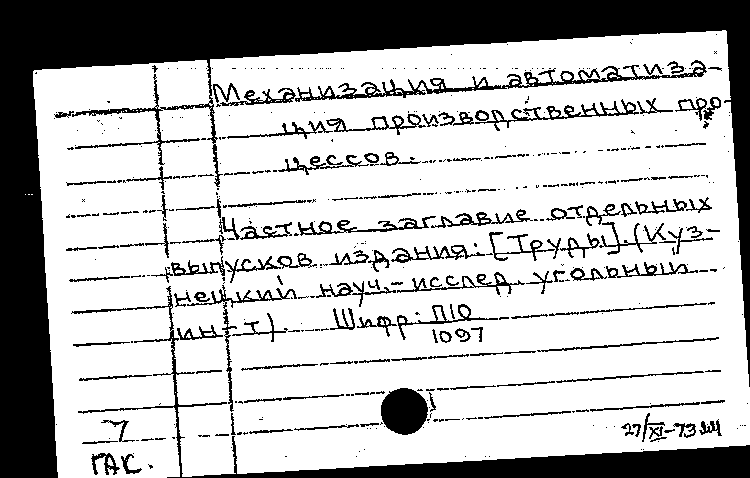 Механизация и автоматиза-
ция производственных про-
цессов.
Частное заглавие отдельных
выпусков издания: [Труды]. (Куз-
нецкий науч.-исслед. угольный
ин-т). Шифр: П10
1097
7
ГАК.
27/XI-73